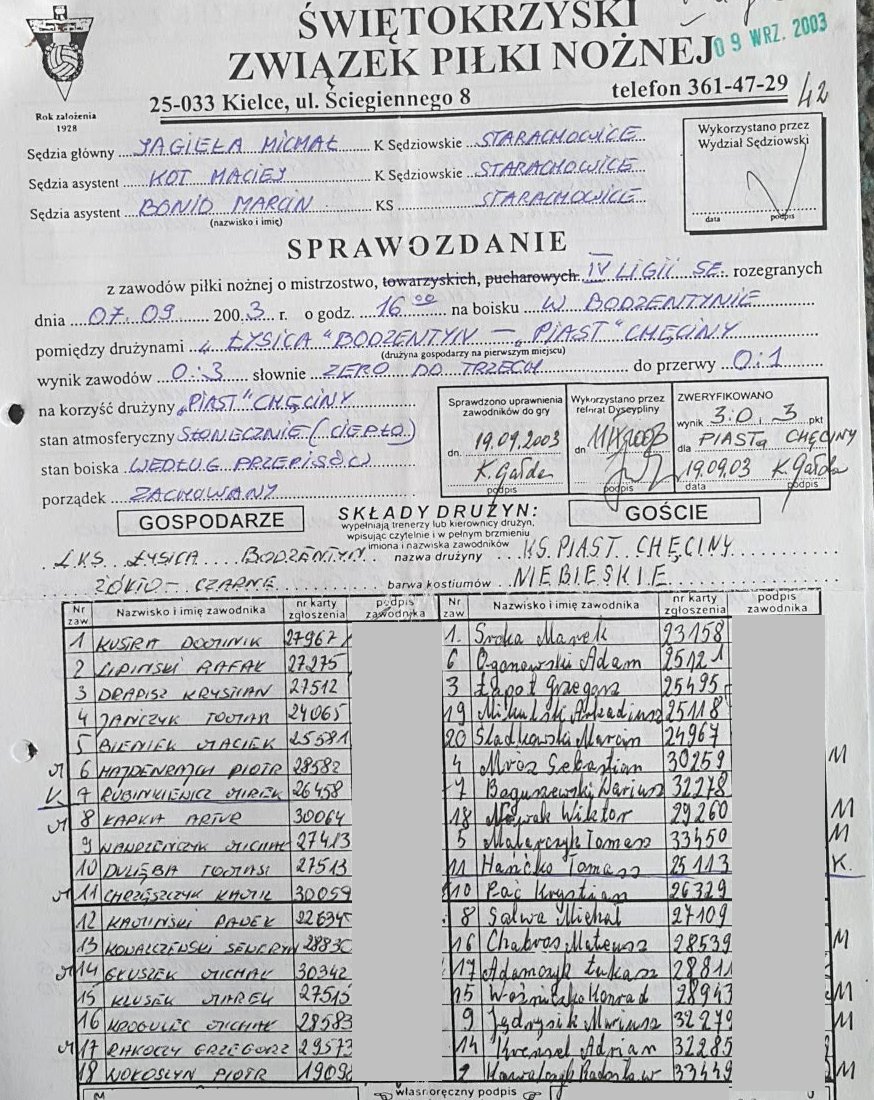 ŚWIĘTOKRZYSKI
ZWIĄZEK PIŁKI NOŻNEJ
09 WRZ. 2003
25-033 Kielce, ul. Ściegiennego 8 telefon 361-47-29
42
Rok założenia
1928
Sędzia główny JAGIEŁA MICHAŁ K Sędziowskie STARACHOWICE
Sędzia asystent KOT MACIEJ K Sędziowskie STARACHOWICE
Sędzia asystent BONIO MARCIN KS STARACHOWICE
(nazwisko i imię)
Wykorzystano przez
Wydział Sędziowski
data podpis
SPRAWOZDANIE
z zawodów piłki nożnej o mistrzostwo, towarzyskich, pucharowych IV LIGII SE. rozegranych
dnia 07.09 2003 r. o godz. 16 00 na boisku W BODZENTYNIE
pomiędzy drużynami „ŁYSICA" BODZENTYN — „PIAST" CHĘCINY
(drużyna gospodarzy na pierwszym miejscu)
wynik zawodów 0:3 słownie ZERO DO TRZECH do przerwy 0:1
na korzyść drużyny „PIAST" CHĘCINY
stan atmosferyczny SŁONECZNIE (CIEPŁO)
stan boiska WEDŁUG PRZEPISÓW
porządek ZACHOWANY
Sprawdzono uprawnienia
zawodników do gry
dn. 19.09.2003
K. Gałda
podpis
Wykorzystano przez
referat Dyscypliny
dn.
podpis
ZWERYFIKOWANO
wynik 3:0, 3 pkt
dla PIASTa CHĘCINY
19.09.03 K Gałda
data podpis
GOSPODARZE
SKŁADY DRUŻYN:
wypełniają trenerzy lub kierownicy drużyn,
wpisując czytelnie i w pełnym brzmieniu
imiona i nazwiska zawodników
GOŚCIE
LKS ŁYSICA BODZENTYN nazwa drużyny KS. PIAST CHĘCINY
ŻÓŁTO-CZARNE barwa kostiumów NIEBIESKIE
Nr zaw Nazwisko i imię zawodnika nr karty zgłoszenia podpis zawodnika Nr zaw Nazwisko i imię zawodnika nr karty zgłoszenia podpis zawodnika
1 KUSTRA DOMINIK 27967 1. Sroka Marek 23158
2 LIPIŃSKI RAFAŁ 27275 6 Oganowski Adam 25121
3 DRAPISZ KRYSTIAN 27512 3 Łapot Grzegorz 25495
4 JAŃCZYK TOMASZ 24065 19 Mikulski Arkadiusz 25118
5 BIENIEK MACIEK 25581 20 Sładkowski Marcin 24967
M 6 HAJDENRAJCH PIOTR 28582 4 Mróz Sebastian 30259 M
K 7 RUBINKIEWICZ MIREK 26458 7 Boguszewski Dariusz 32278
M 8 KAPKA ARTUR 30064 18 Nowak Wiktor 29260 M
9 WANDZEŃCZYK MICHAŁ 27413 5 Malarczyk Tomasz 33450 M
10 DULĘBA TOMASZ 27513 11 Hańćko Tomasz 25113 K.
M 11 CHRZĘSZCZYK KAMIL 30059 10 Pać Krystian 26329
12 KAMIŃSKI PAWEŁ 22634 8 Salwa Michał 27109
13 KOWALCZEWSKI SEWERYN 28830 16 Chabros Mateusz 28539 M
M 14 GŁUSZEK MICHAŁ 30342 17 Adamczyk Łukasz 28811
15 KLUSEK MAREK 27515 15 Woźniczko Konrad 28943 M
16 KROGULEC MICHAŁ 28583 9 Jędrysik Mariusz 32279 M
M 17 RAKOCZY GRZEGORZ 29573 14 Krensel Adrian 32285
18 WOKOSLYN PIOTR 1909 2 Kowalczyk Radosław 33449 M
własnoręczny podpis